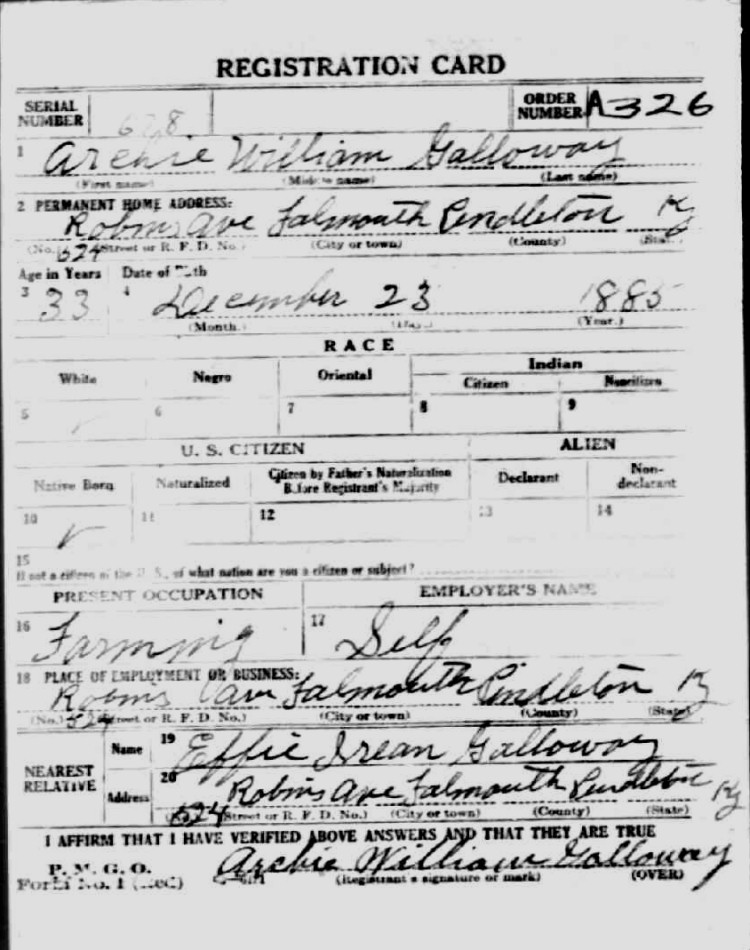 REGISTRATION CARD
SERIAL NUMBER 628 ORDER NUMBER A326
1 Archie William Galloway
(First name) (Middle name) (Last name)
2 PERMANENT HOME ADDRESS:
Robins Ave Falmouth Pendleton Ky
(No.) 524 (Street or R. F. D. No.) (City or town) (County) (State)
Age in Years Date of Birth
3 33 4 December 23 1885
(Month.) (Day.) (Year.)
RACE
White Negro Oriental Indian
Citizen Noncitizen
5 ✓ 6 7 8 9
U. S. CITIZEN ALIEN
Native Born Naturalized Citizen by Father's Naturalization Before Registrant's Majority Declarant Non-declarant
10 ✓ 11 12 13 14
15
If not a citizen of the U. S., of what nation are you a citizen or subject?
PRESENT OCCUPATION EMPLOYER'S NAME
16 Farming 17 Self
18 PLACE OF EMPLOYMENT OR BUSINESS:
Robins Ave Falmouth Pendleton Ky
(No.) 524 (Street or R. F. D. No.) (City or town) (County) (State)
NEAREST RELATIVE Name 19 Effie Irean Galloway
Address 20 Robins Ave Falmouth Pendleton Ky
(No.) 524 (Street or R. F. D. No.) (City or town) (County) (State)
I AFFIRM THAT I HAVE VERIFIED ABOVE ANSWERS AND THAT THEY ARE TRUE
P. M. G. O.
Form No. 1 (Red) Archie William Galloway
(Registrant's signature or mark) (OVER)